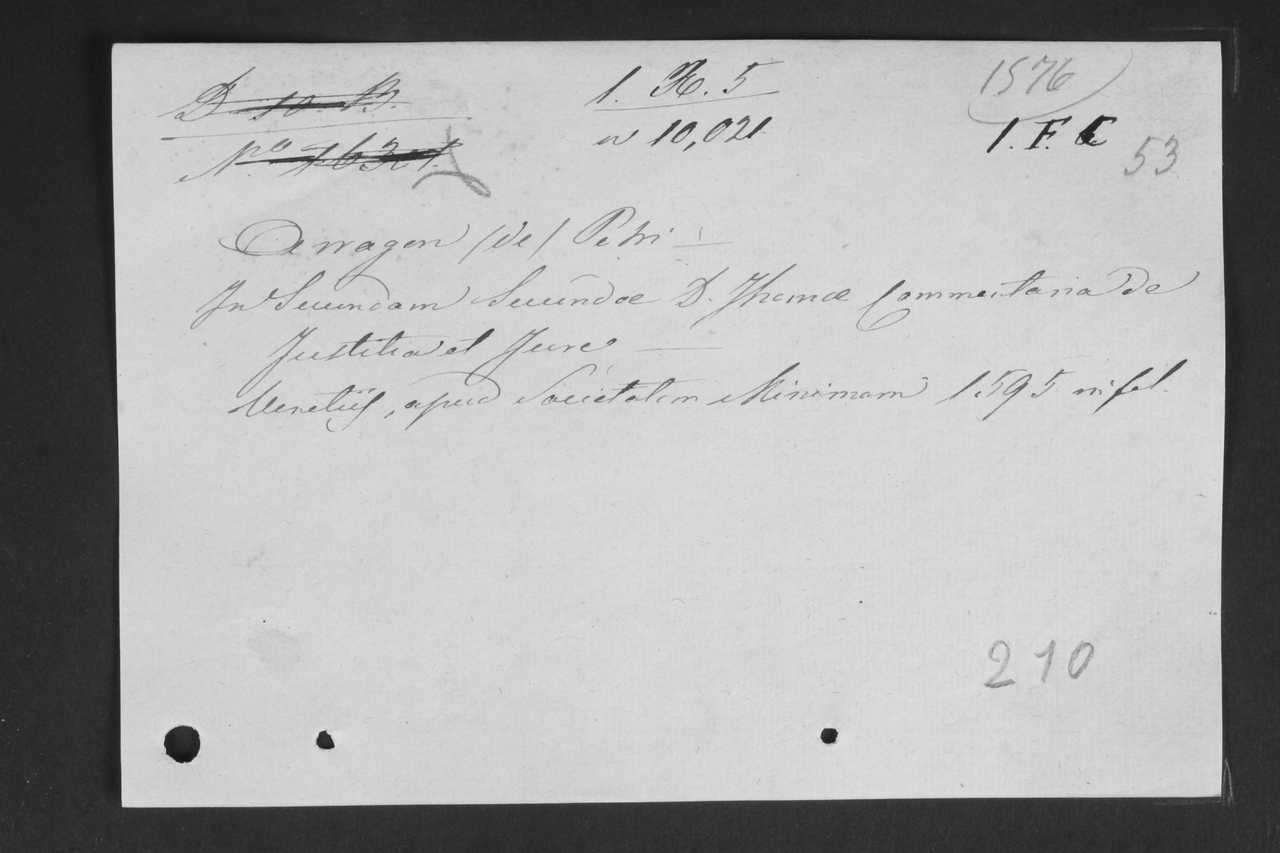 D. 10. B. 1. H. 5 1576
Nro 7631. a 10,021 1. F. 6 53
Arragon (de) Petri —
In Secundam Secundæ D. Thomæ Commentaria de
Justitia et Jure —
Venetijs, apud Societatem Minimam 1595 in fol.
210